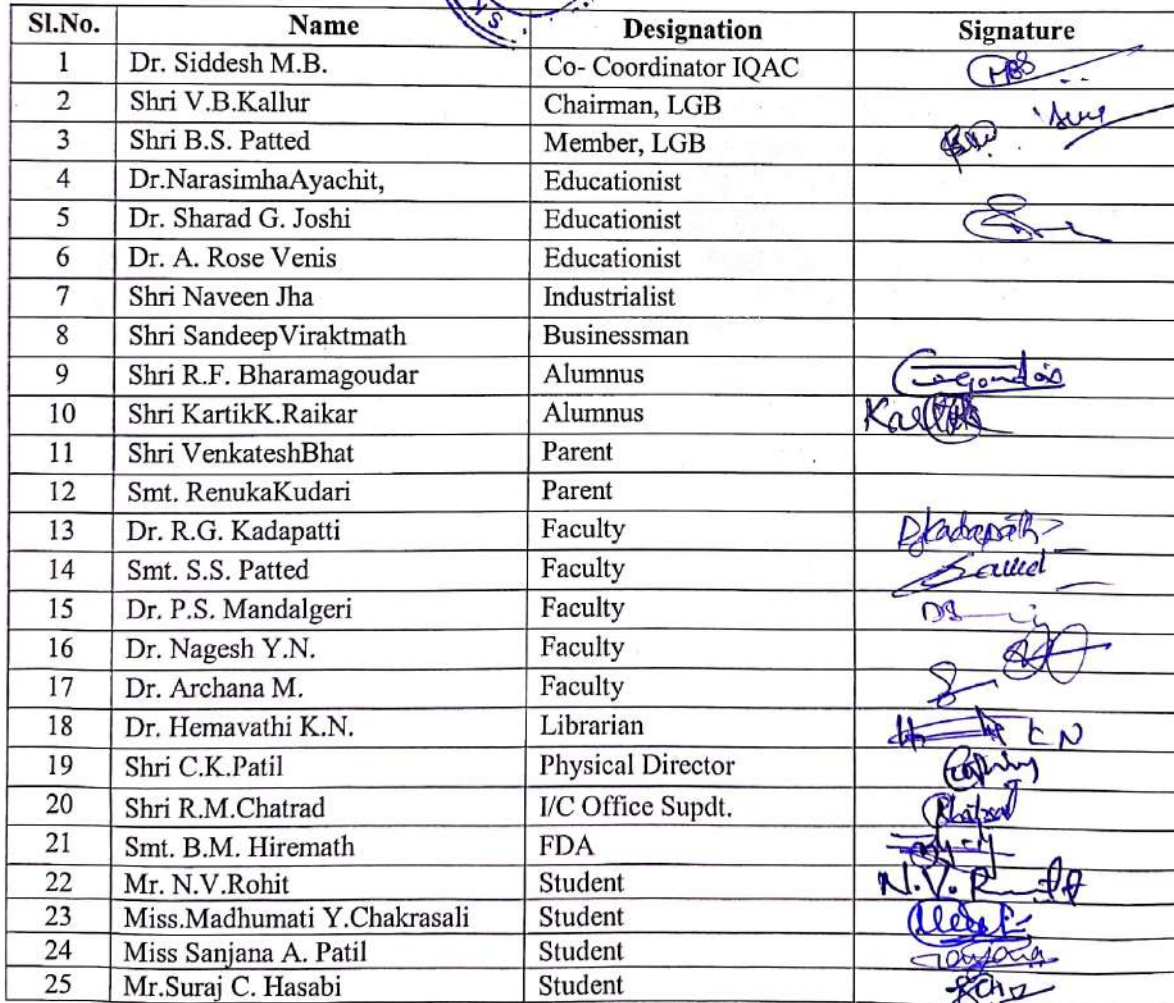 Sl.No. Name Designation Signature
1 Dr. Siddesh M.B. Co- Coordinator IQAC
2 Shri V.B.Kallur Chairman, LGB
3 Shri B.S. Patted Member, LGB
4 Dr.NarasimhaAyachit, Educationist
5 Dr. Sharad G. Joshi Educationist
6 Dr. A. Rose Venis Educationist
7 Shri Naveen Jha Industrialist
8 Shri SandeepViraktmath Businessman
9 Shri R.F. Bharamagoudar Alumnus
10 Shri KartikK.Raikar Alumnus
11 Shri VenkateshBhat Parent
12 Smt. RenukaKudari Parent
13 Dr. R.G. Kadapatti Faculty
14 Smt. S.S. Patted Faculty
15 Dr. P.S. Mandalgeri Faculty
16 Dr. Nagesh Y.N. Faculty
17 Dr. Archana M. Faculty
18 Dr. Hemavathi K.N. Librarian
19 Shri C.K.Patil Physical Director
20 Shri R.M.Chatrad I/C Office Supdt.
21 Smt. B.M. Hiremath FDA
22 Mr. N.V.Rohit Student
23 Miss.Madhumati Y.Chakrasali Student
24 Miss Sanjana A. Patil Student
25 Mr.Suraj C. Hasabi Student